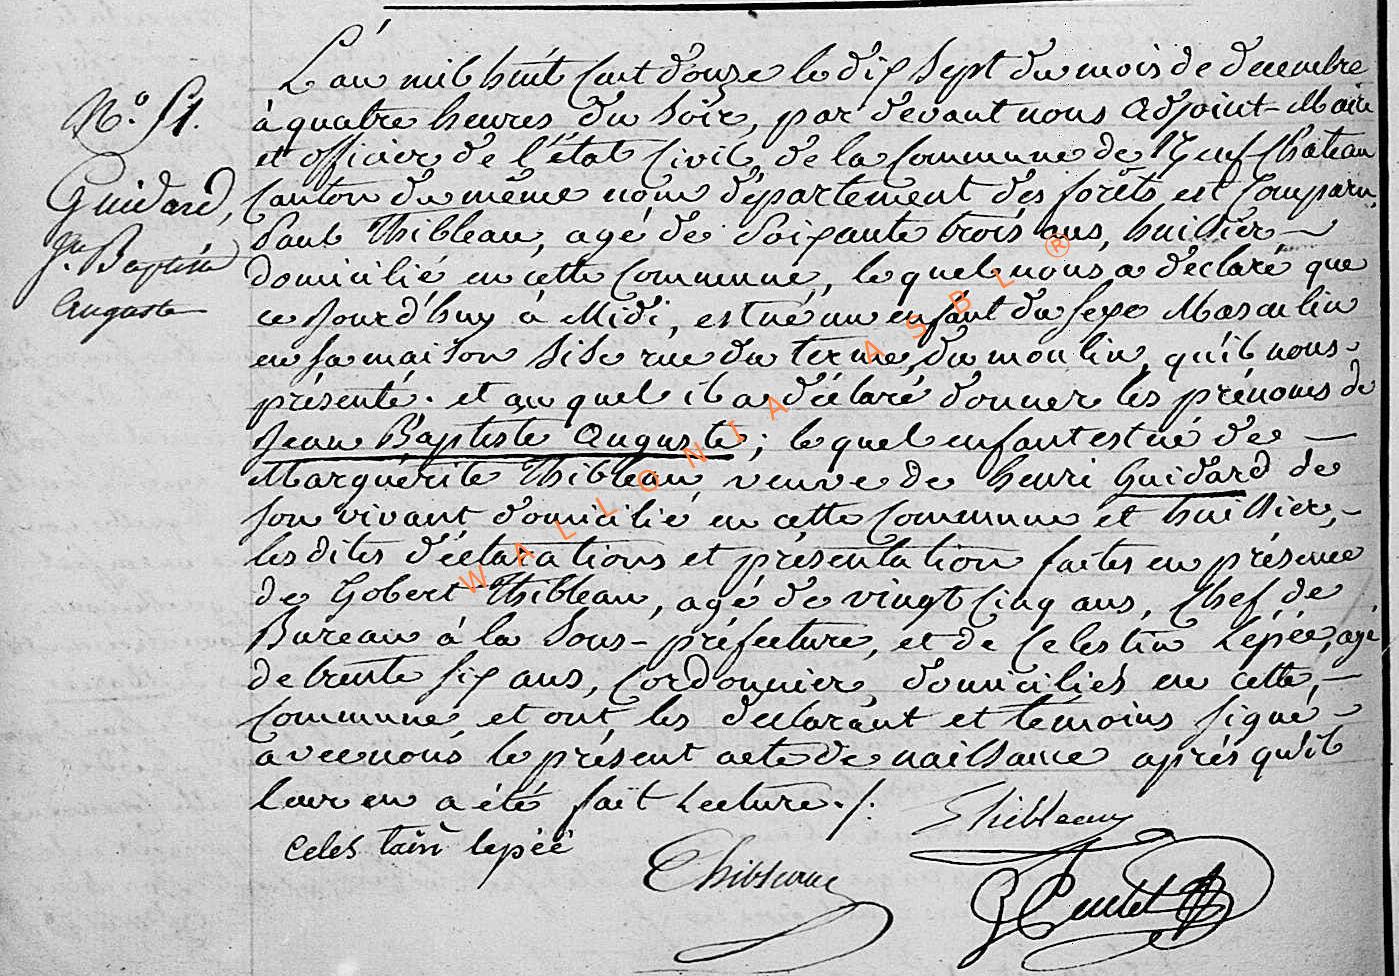 N.o 51.
Guidard,
Jn Baptiste
auguste
L'an mil huit cent douze le dix sept du mois de decembre
à quatre heures du soir, par devant nous adjoint-Maire
et officier de l'état Civil, de la Commune de Neufchateau
Canton du même nom département des forêts est Comparu,
Paul Thibleau, agé de Soixante trois ans, huissier
domicilié en cette Commune, le quel nous a déclaré que
ce Jourd'huy à Midi, est né un enfant du sexe Masculin
en sa maison Sise rue du terme, du moulin, qu'il nous
présenté. et au quel il a déclaré donner les prénoms de
Jean Baptiste auguste; le quel enfant est né de
Marguérite Thibleau, veuve de henri Guidard de
son vivant domicilié en cette Commune et huissier,
les dites déclarations et présentation faites en présence
de Gobert Thibleau, agé de vingt Cinq ans, Chef de
Bureau à la Sous-préfecture, et de Celestin Lepée, agé
de trente six ans, Cordonnier, domiciliés en cette,
Commune et ont les declarant et témoins signé
avec nous le présent acte de naissance après qu'il
leur en a été fait Lecture ./.
Thibleau
celes tain lepéé
Thibleau
WALLONIA ASBL ®